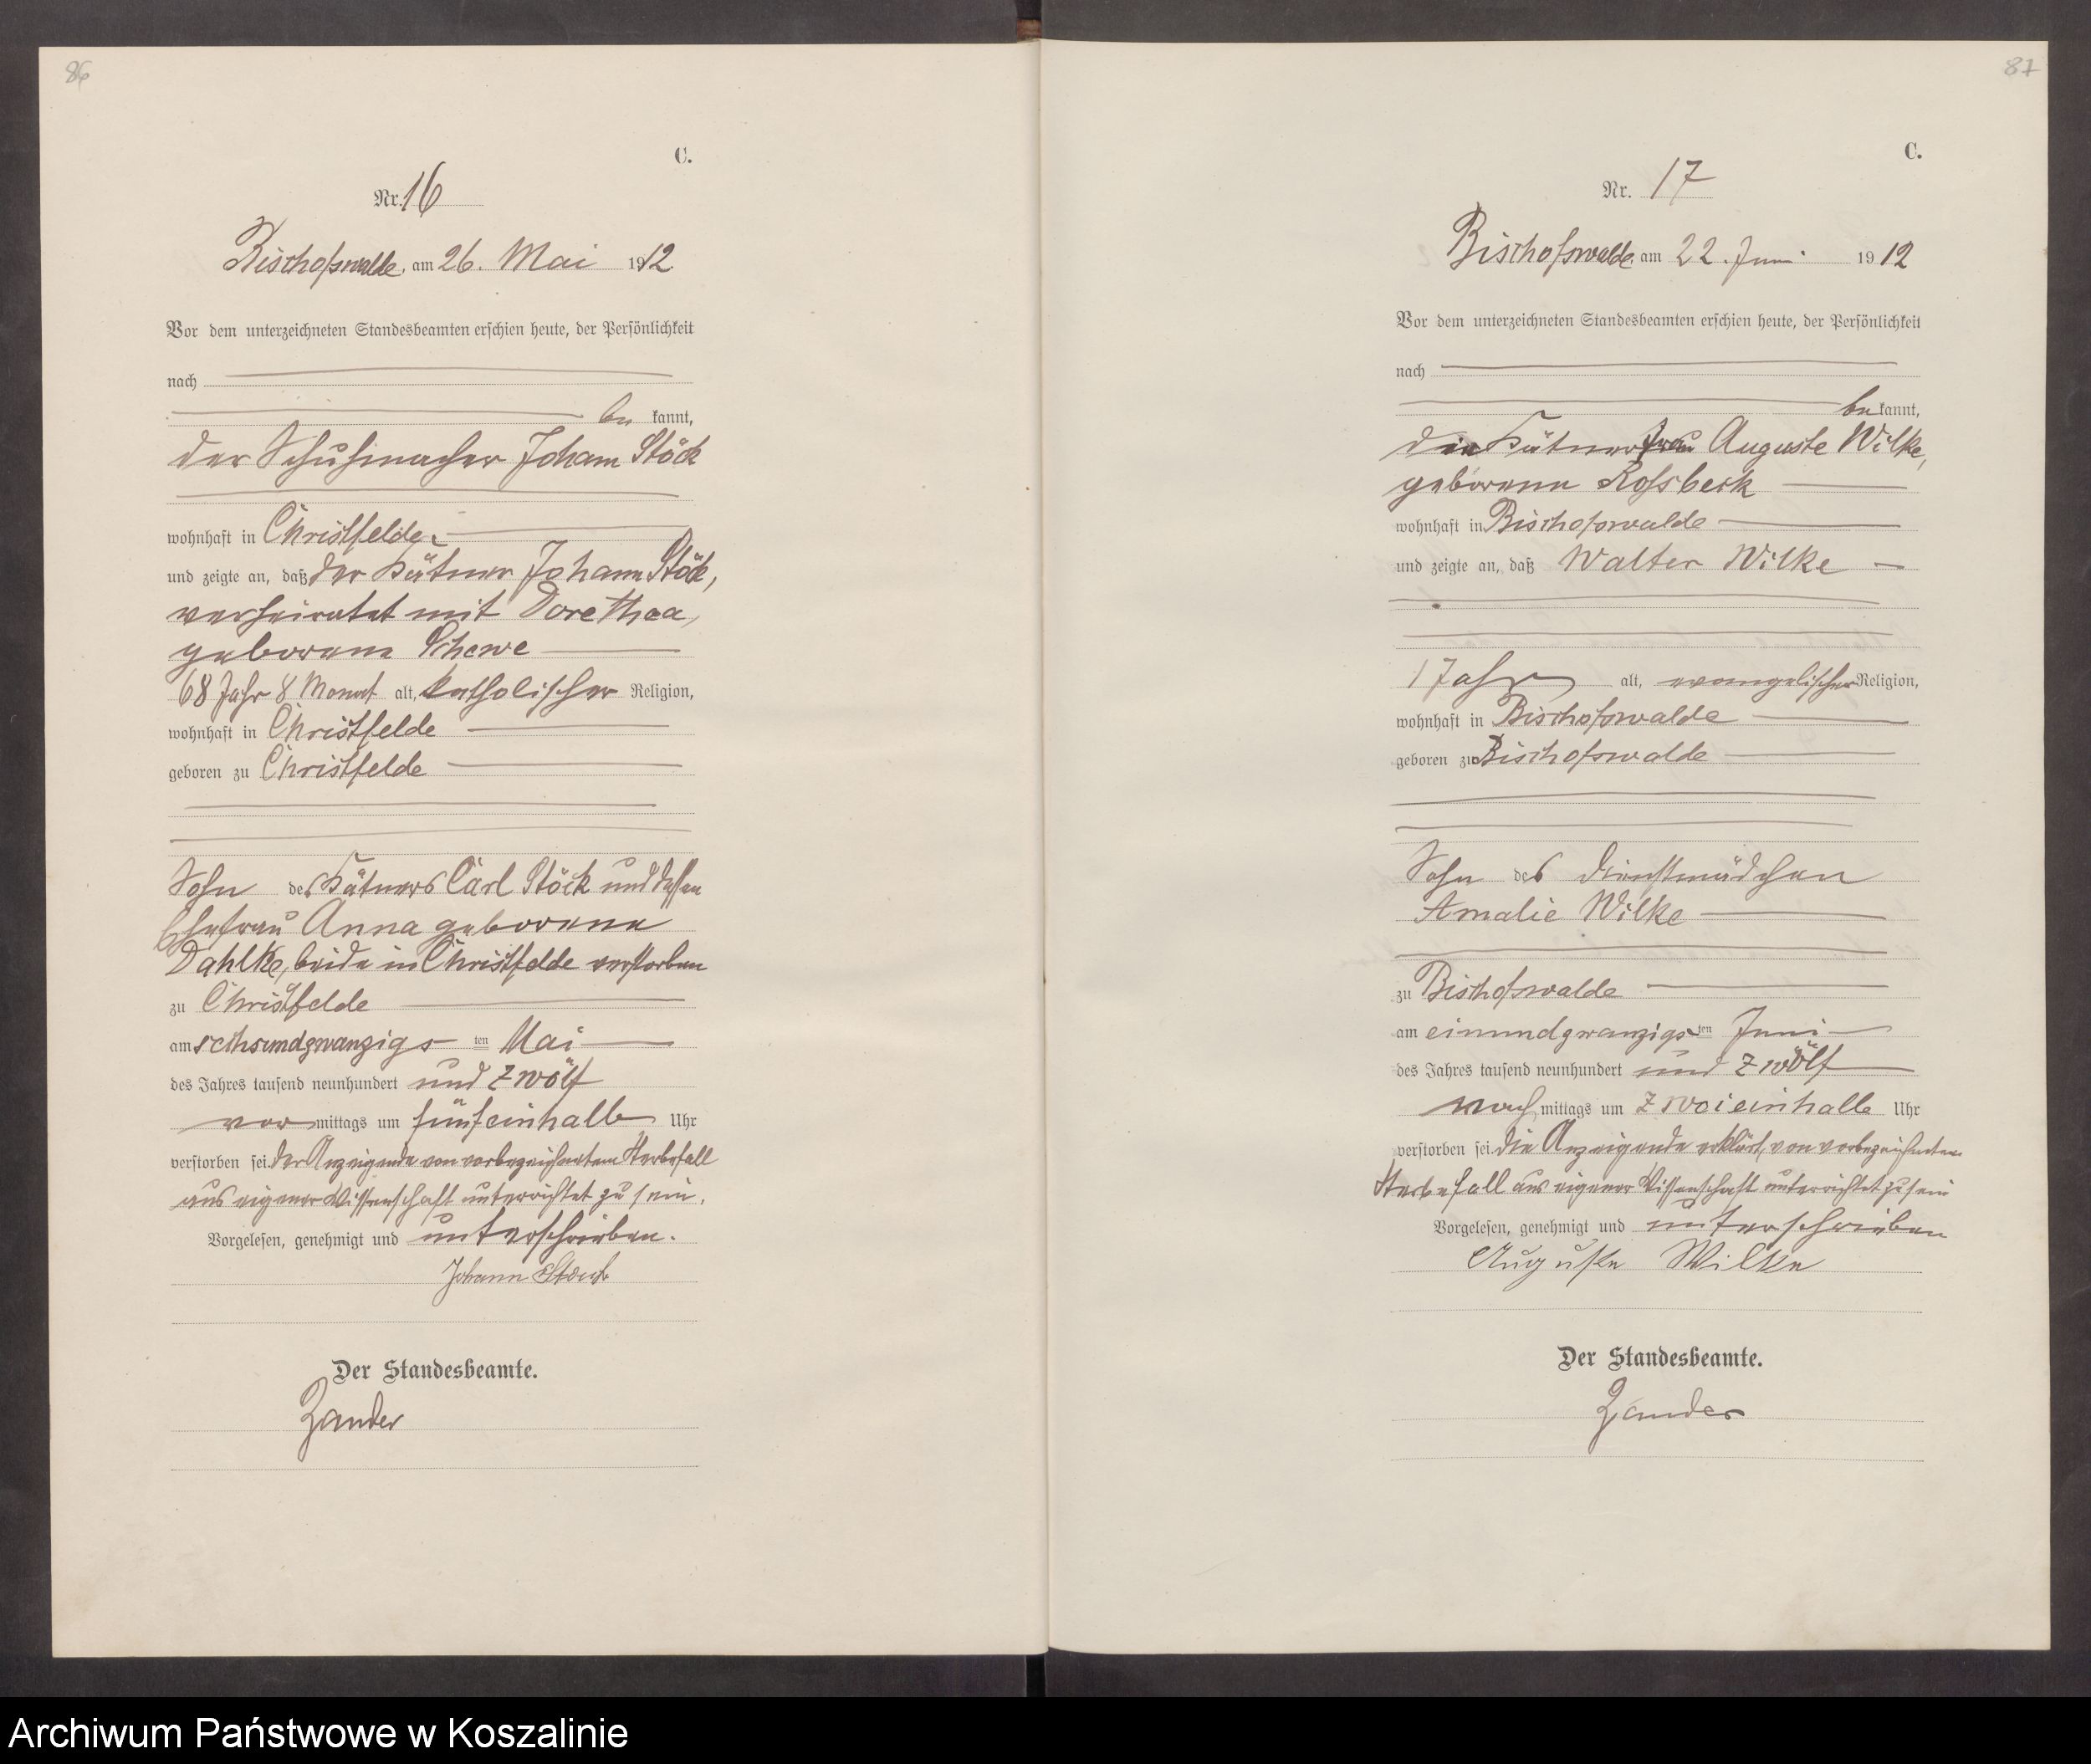 86
C.
Nr. 16
Bischofswalde, am 26. Mai 1912
Vor dem unterzeichneten Standesbeamten erschien heute, der Persönlichkeit
nach
be kannt,
der Schuhmacher Johann Stöck
wohnhaft in Christfelde
und zeigte an, daß der Kätner Johann Stöck,
verheiratet mit Dorethea,
geborene Schewe
68 Jahr 8 Monat alt, katholischer Religion,
wohnhaft in Christfelde
geboren zu Christfelde
Sohn des Kätners Carl Stöck und dessen
Ehefrau Anna geborene
Dahlke, beide in Christfelde verstorben
zu Christfelde
am sechsundzwanzigs ten Mai
des Jahres tausend neunhundert und zwölf
vor mittags um fünfeinhalb Uhr
verstorben sei. Der Anzeigende von vorbezeichnetem Sterbefall
aus eigener Wissenschaft unterrichtet zu sein.
Vorgelesen, genehmigt und unterschrieben.
Johann Stöck
Der Standesbeamte.
Zander
87
C.
Nr. 17
Bischofswalde, am 22. Juni 1912
Vor dem unterzeichneten Standesbeamten erschien heute, der Persönlichkeit
nach
be kannt,
die Kätnerfrau Auguste Wilke,
geborene Rossbeck
wohnhaft in Bischofswalde
und zeigte an, daß Walter Wilke
1 Jahr alt, evangelischer Religion,
wohnhaft in Bischofswalde
geboren zu Bischofswalde
Sohn des Dienstmädchen
Amalie Wilke
zu Bischofswalde
am einundzwanzigs ten Juni
des Jahres tausend neunhundert und zwölf
nach mittags um zweieinhalb Uhr
verstorben sei. Die Anzeigende erklärt, von vorbezeichneten
Sterbefall aus eigener Wissenschaft unterrichtet zu sein
Vorgelesen, genehmigt und unterschrieben
Auguste Wilke
Der Standesbeamte.
Zander
Archiwum Państwowe w Koszalinie